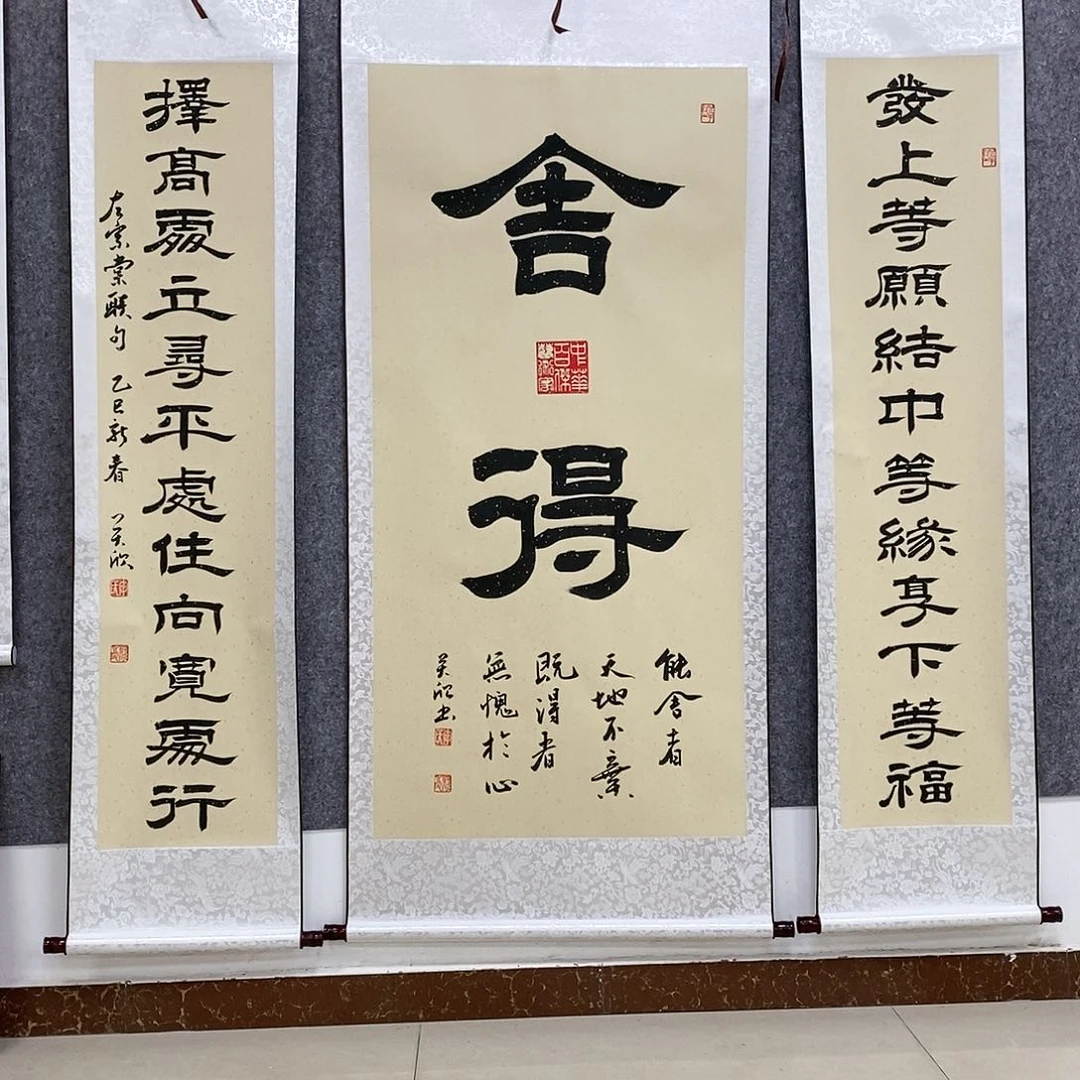 發上等願結中等緣享下等福
舍得
中華
百傑
能舍者
天地不棄
既得者
無愧於心
美欣书
擇高處立尋平處住向寬處行
左宗棠联句 乙巳新春 美欣